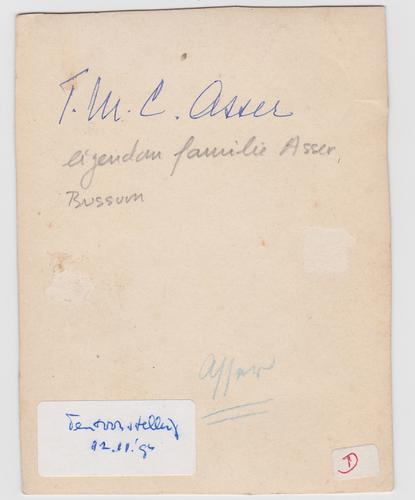 T. M. C. Asser
eigendom familie Asser,
Bussum
Asser
Tentoonstelling
12.11.'94
D